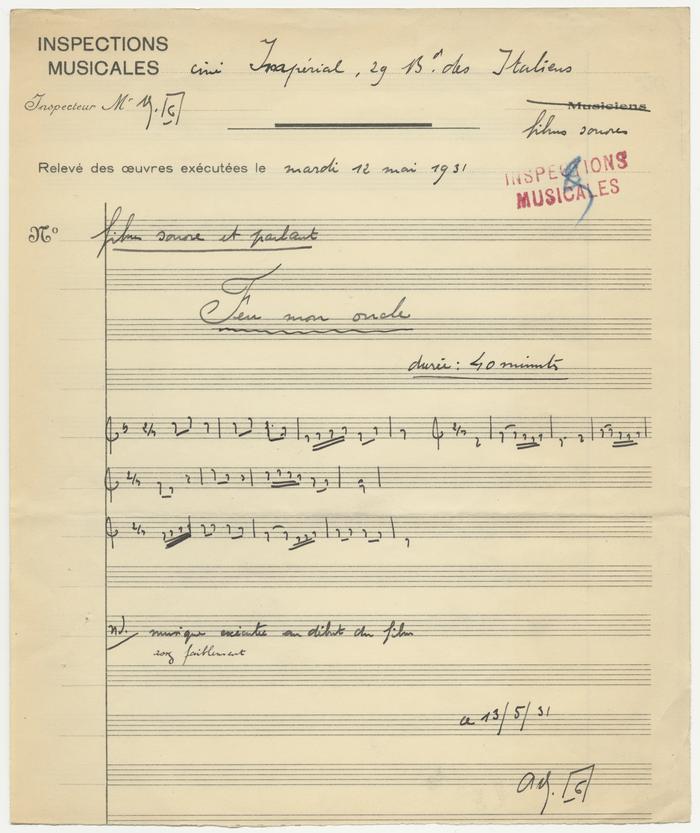 INSPECTIONS
MUSICALES
ciné Impérial, 29 Bd. des Italiens
Inspecteur Mr
Musiciens
films sonores
Relevé des œuvres exécutées le mardi 12 mai 1931
INSPECTIONS
MUSICALES
No
films sonore et parlant
Feu mon oncle
durée : 40 minutes
musique exécutée au début du film
faiblement
ce 13/5/31